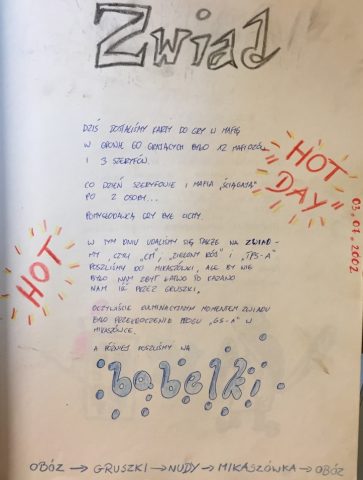 Zwiad
DZIŚ DOSTALIŚMY KARTY DO GRY W MAFIĘ
W GRONIE 60 GRAJĄCYCH BYŁO 12 MAFIOZÓW
I 3 SZERYFÓW.
CO DZIEŃ SZERYFOWIE I MAFIA „ŚCIĄGAJĄ"
PO 2 OSOBY...
POMYSŁODAWCĄ GRY BYŁ UCHY.
"HOT
DAY"
03.07.2002
HOT
W TYM DNIU UDALIŚMY SIĘ TAKŻE NA ZWIAD
MY, CZYLI „CM", „ZIELONY RÓJ" I „TPS-A"
POSZLIŚMY DO MIKASZÓWKI, ALE BY NIE
BYŁO NAM ZBYT ŁATWO TO KAZANO
NAM IŚĆ PRZEZ GRUSZKI.
OCZYWIŚCIE KULMINACYJNYM MOMENTEM ZWIADU
BYŁO PRZEKROCZENIE PROGU „GS-A" W
MIKASZÓWCE.
A PÓŹNIEJ POSZLIŚMY NA
bąbelki
OBÓZ → GRUSZKI → NUDY → MIKASZÓWKA → OBÓZ